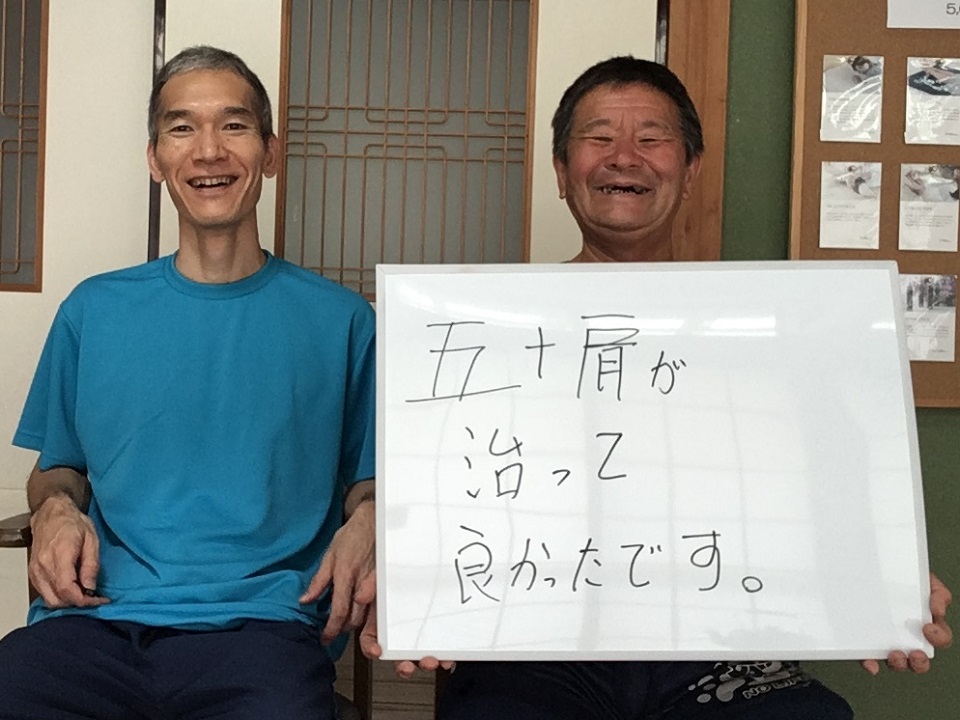 五十肩が
治って
良かったです。
5,